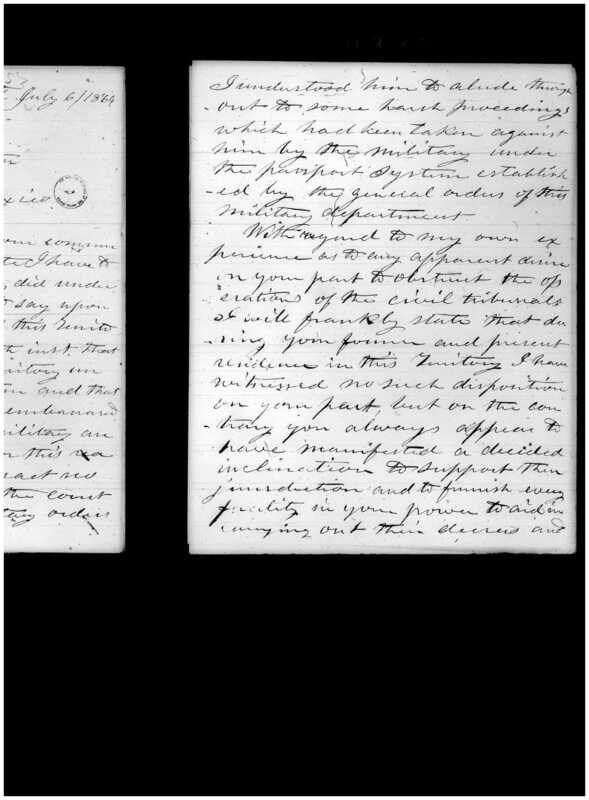 July 6/1864
I have to
did under
say upon
this Territo
inst. that
and that
military an
the Court
orders
I understood him to alude through
-out to some harsh proceedings
which had been taken against
him by the military under
the passport system establish
-ed by the general orders of this
military department
With regard to my own ex
perience as to any apparent desire
on your part to obstruct the op
erations of the civil tribunals
I will frankly state that du
ring your former and present
residence in this Territory I have
witnessed no such disposition
on your part, but on the con
trary you always appear to
have manifested a decided
inclination to support their
jurisdiction and to furnish every
facility in your power to aid in
carrying out their decrees and